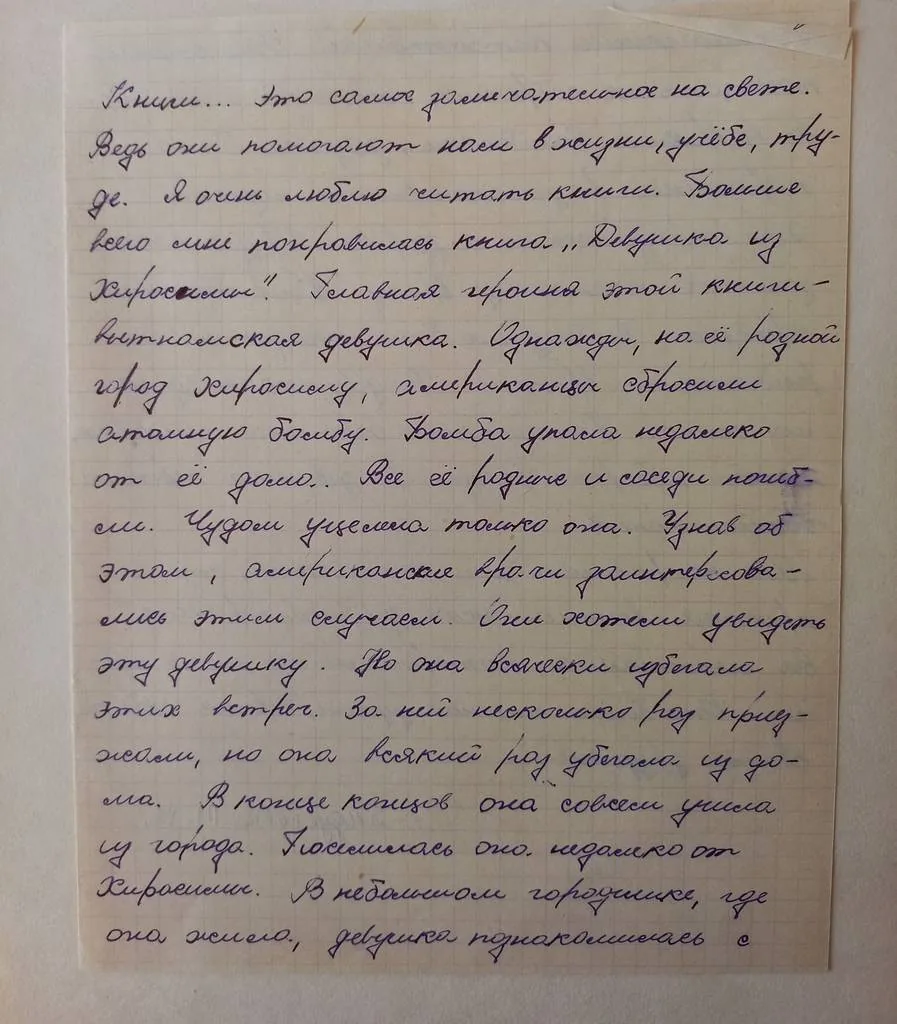 Книги... Это самое замечательное на свете.
Ведь они помогают нам в жизни, учёбе, тру-
де. Я очень люблю читать книги. Больше
всего мне понравилась книга „Девушка из
Хиросимы". Главная героиня этой книги –
вьетнамская девушка. Однажды, на её родной
город Хиросиму, американцы сбросили
атомную бомбу. Бомба упала недалеко
от её дома. Все её родные и соседи погиб-
ли. Чудом уцелела только она. Узнав об
этом, американские врачи заинтересова-
лись этим случаем. Они хотели увидеть
эту девушку. Но она всячески избегала
этих встреч. За ней несколько раз приез-
жали, но она всякий раз убегала из до-
ма. В конце концов она совсем ушла
из города. Поселилась она недалеко от
Хиросимы. В небольшом городишке, где
она жила, девушка познакомилась с